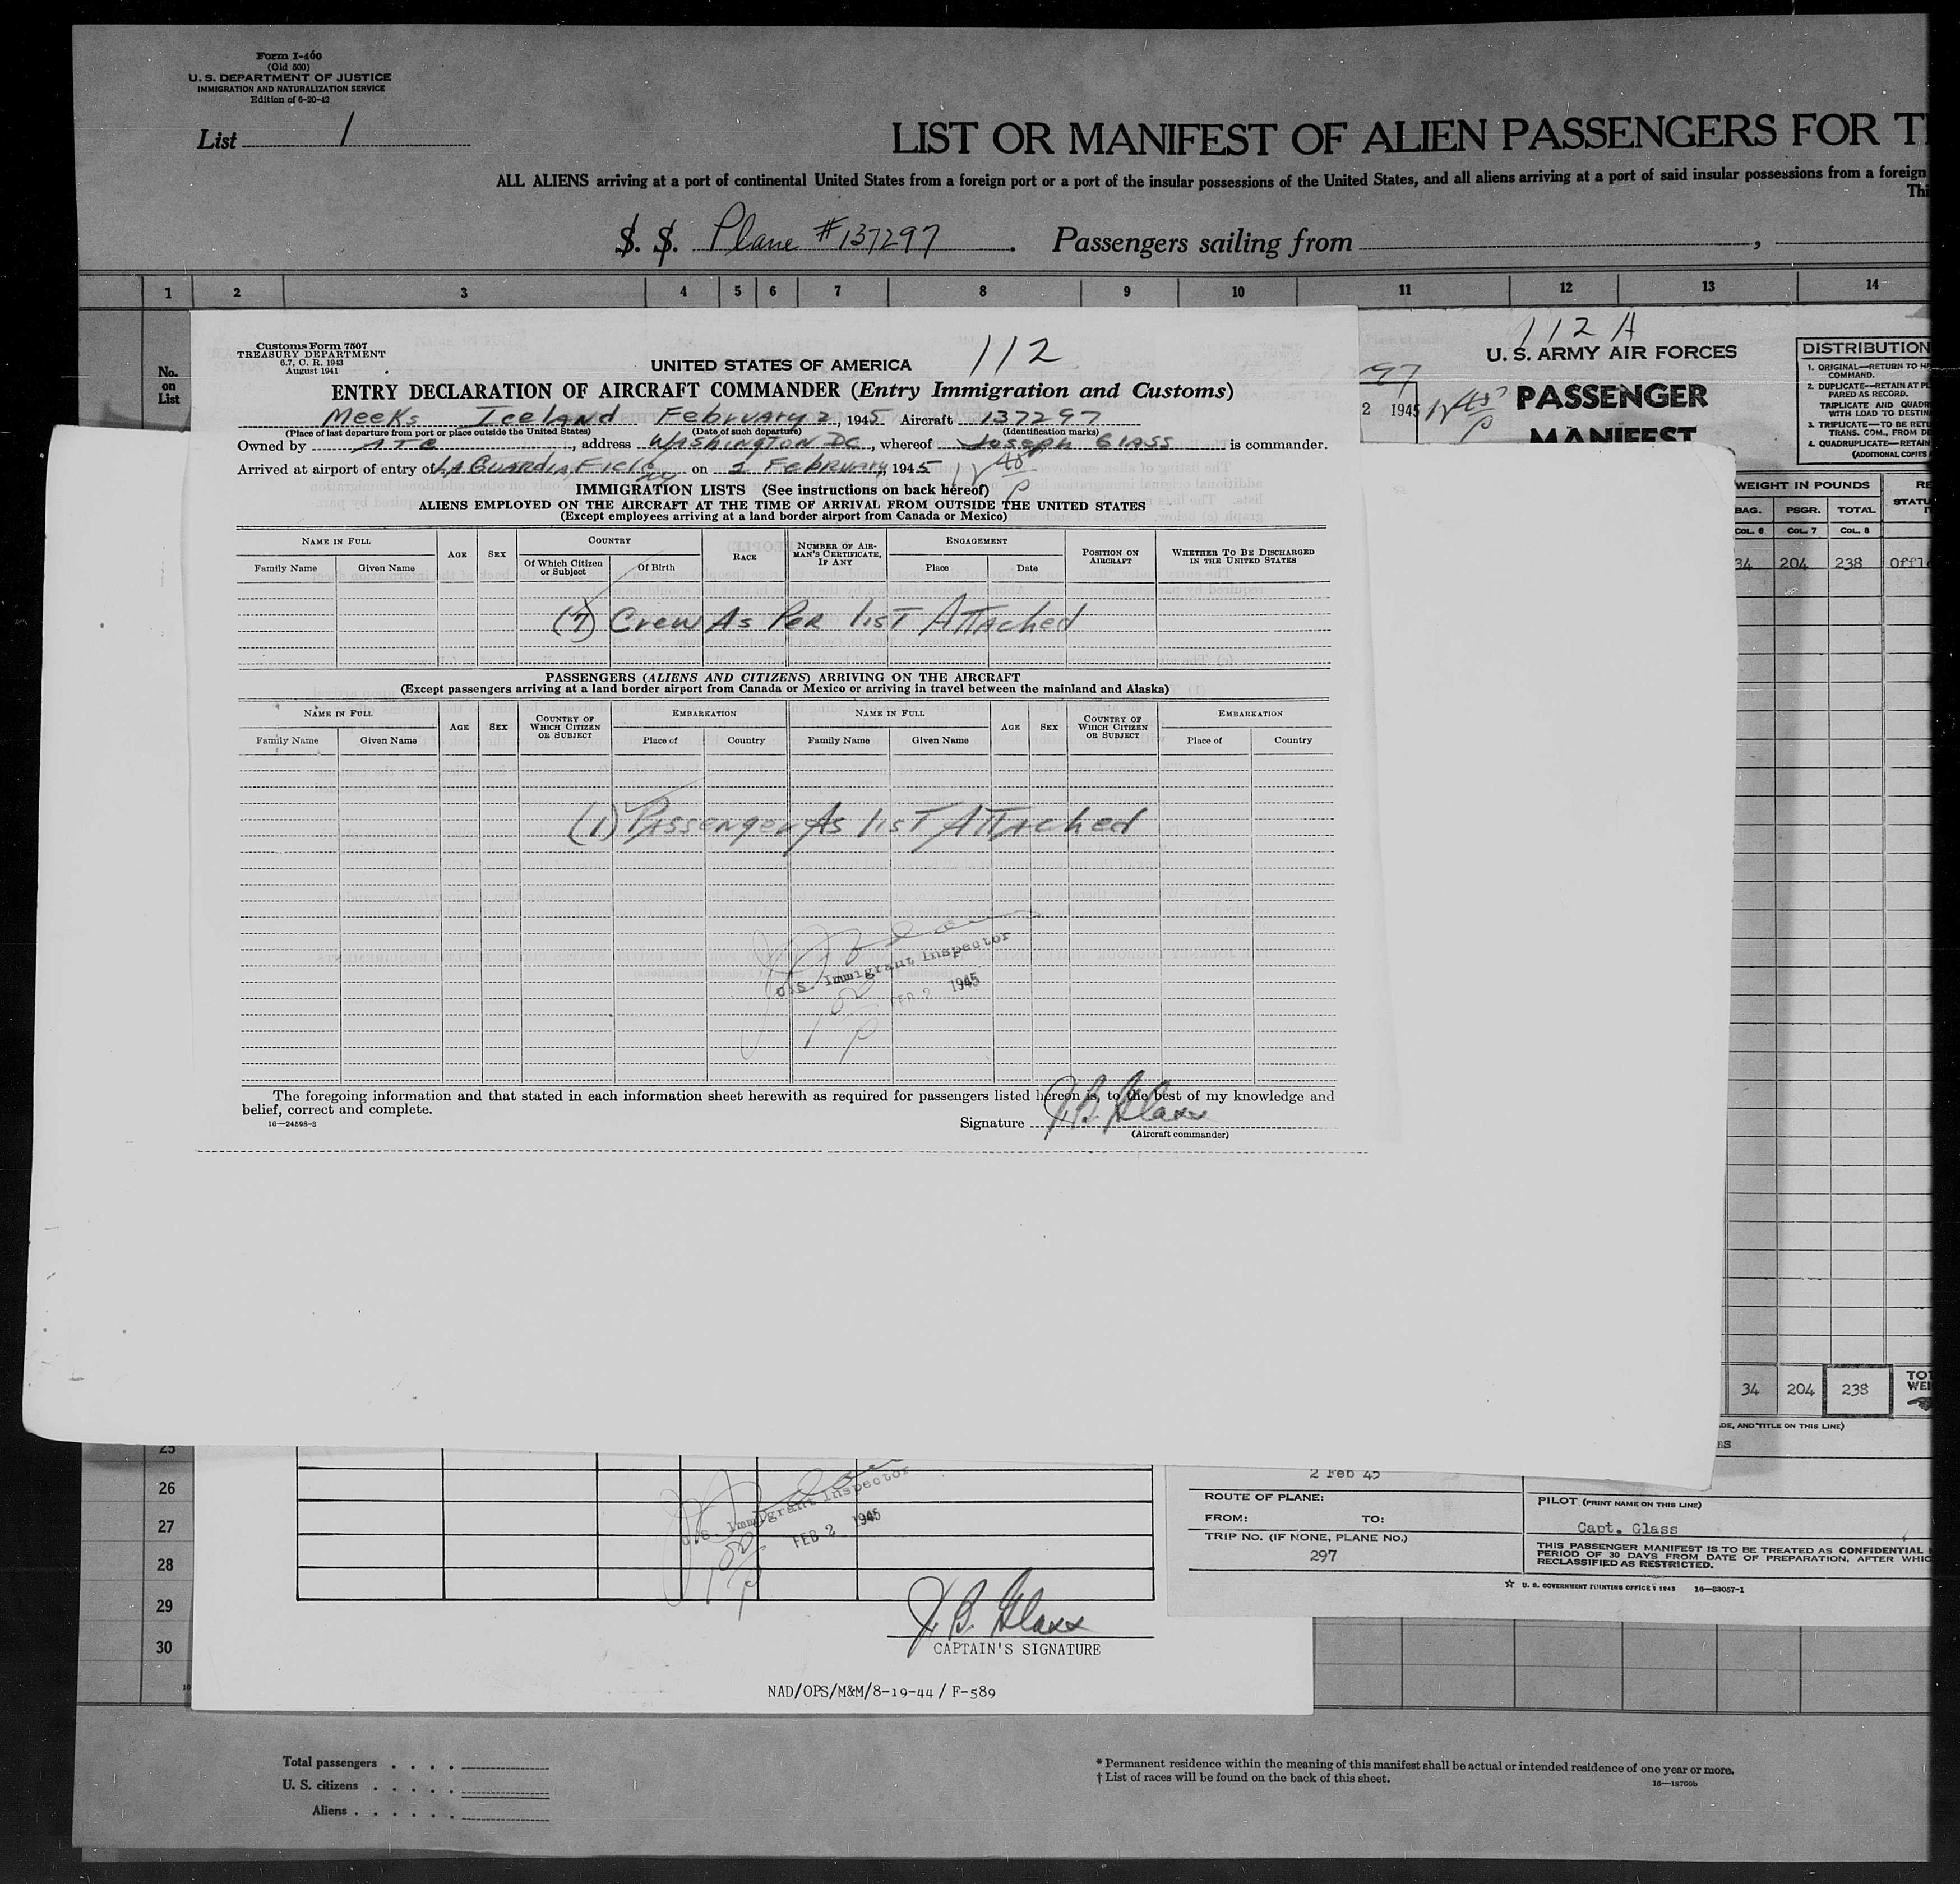 Form I-400
(Old 500)
U. S. DEPARTMENT OF JUSTICE
IMMIGRATION AND NATURALIZATION SERVICE
Edition of 6-20-42
List 1
LIST OR MANIFEST OF ALIEN PASSENGERS FOR T
ALL ALIENS arriving at a port of continental United States from a foreign port or a port of the insular possessions of the United States, and all aliens arriving at a port of said insular possessions from a foreign
Thi
S. S. Plane #137297. Passengers sailing from ,
1 2 3 4 5 6 7 8 9 10 11 12 13 14
No. on List
Customs Form 7507
TREASURY DEPARTMENT
6.7, C. R. 1943
August 1941
UNITED STATES OF AMERICA 112
ENTRY DECLARATION OF AIRCRAFT COMMANDER (Entry Immigration and Customs)
Meeks Iceland February 2, 1945 Aircraft 137297
(Place of last departure from port or place outside the United States) (Date of such departure) (Identification marks)
Owned by ATC, address Washington DC, whereof Joseph Glass is commander.
Arrived at airport of entry of La Guardia Field on 2 February, 1945
IMMIGRATION LISTS (See instructions on back hereof)
ALIENS EMPLOYED ON THE AIRCRAFT AT THE TIME OF ARRIVAL FROM OUTSIDE THE UNITED STATES
(Except employees arriving at a land border airport from Canada or Mexico)
NAME IN FULL AGE SEX COUNTRY RACE NUMBER OF AIRMAN'S CERTIFICATE, IF ANY ENGAGEMENT POSITION ON AIRCRAFT WHETHER TO BE DISCHARGED IN THE UNITED STATES
Family Name Given Name Of Which Citizen or Subject Of Birth Place Date
(7) Crew As Per list Attached
PASSENGERS (ALIENS AND CITIZENS) ARRIVING ON THE AIRCRAFT
(Except passengers arriving at a land border airport from Canada or Mexico or arriving in travel between the mainland and Alaska)
NAME IN FULL AGE SEX COUNTRY OF WHICH CITIZEN OR SUBJECT EMBARKATION NAME IN FULL AGE SEX COUNTRY OF WHICH CITIZEN OR SUBJECT EMBARKATION
Family Name Given Name Place of Country Family Name Given Name Place of Country
(1) Passenger As list Attached
U.S. Immigrant Inspector
FEB 2 1945
The foregoing information and that stated in each information sheet herewith as required for passengers listed hereon is, to the best of my knowledge and
belief, correct and complete.
16—24598-3
Signature J. B. Glass
(Aircraft commander)
112 A
U. S. ARMY AIR FORCES
PASSENGER
MANIFEST
97
2 1945
DISTRIBUTION
1. ORIGINAL—RETURN TO
COMMAND.
2. DUPLICATE—RETAIN AT
PARED AS RECORD.
TRIPLICATE AND QUADR
WITH LOAD TO DESTIN
3. TRIPLICATE—TO BE RETU
TRANS. COM., FROM DE
4. QUADRUPLICATE—RETAIN
(ADDITIONAL COPIES
WEIGHT IN POUNDS RE
BAG. PSGR. TOTAL STATU
COL. 6 COL. 7 COL. 8
34 204 238 Offl
34 204 238 TOT
WEI
DE, AND TITLE ON THIS LINE)
ns
2 Feb 45
ROUTE OF PLANE:
FROM: TO:
TRIP No. (IF NONE, PLANE NO.)
297
PILOT (PRINT NAME ON THIS LINE)
Capt. Glass
THIS PASSENGER MANIFEST IS TO BE TREATED AS CONFIDENTIAL
PERIOD OF 30 DAYS FROM DATE OF PREPARATION, AFTER WHIC
RECLASSIFIED AS RESTRICTED.
☆ U. S. GOVERNMENT PRINTING OFFICE: 1943 16—33057-1
25
26
27
28
29
30
U.S. Immigrant Inspector
FEB 2 1945
J. B. Glass
CAPTAIN'S SIGNATURE
NAD/OPS/M&M/8-19-44/F-589
Total passengers
U. S. citizens
Aliens
* Permanent residence within the meaning of this manifest shall be actual or intended residence of one year or more.
† List of races will be found on the back of this sheet.
16—18700b